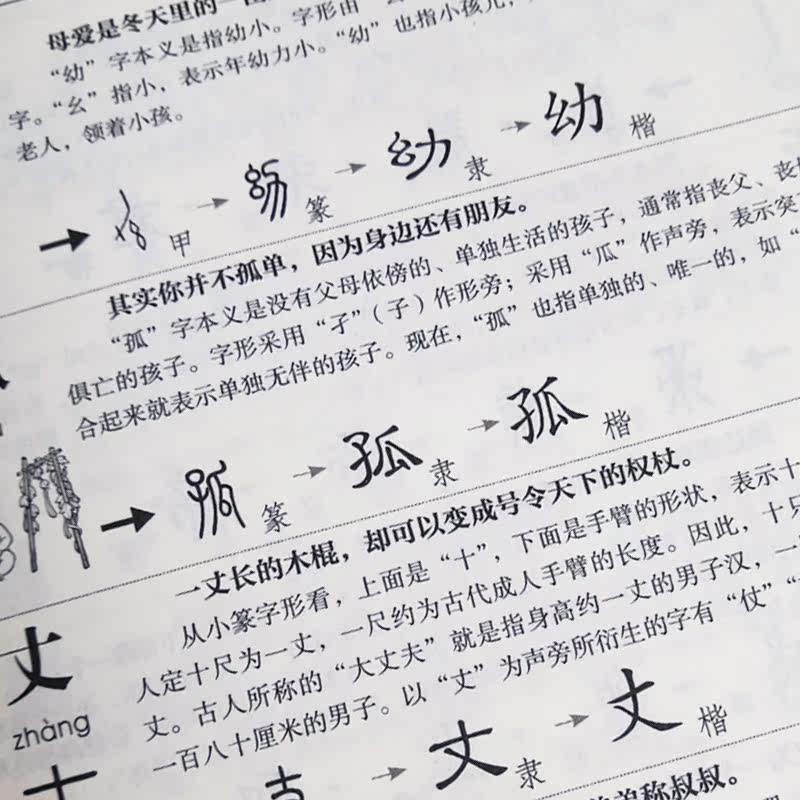 母爱是冬天里的一
“幼”字本义是指幼小。字形由“
字。“幺”指小，表示年幼力小。“幼”也指小孩儿，
老人，领着小孩。
甲 篆 幼 隶 幼 楷
其实你并不孤单，因为身边还有朋友。
“孤”字本义是没有父母依傍的、单独生活的孩子，通常指丧父、丧
俱亡的孩子。字形采用“孑”（子）作形旁；采用“瓜”作声旁，表示突
合起来就表示单独无伴的孩子。现在，“孤”也指单独的、唯一的，如“
孤 篆 孤 隶 孤 楷
一丈长的木棍，却可以变成号令天下的权杖。
从小篆字形看，上面是“十”，下面是手臂的形状，表示十
人定十尺为一丈，一尺约为古代成人手臂的长度。因此，十尺
丈。古人所称的“大丈夫”就是指身高约一丈的男子汉，一
一百八十厘米的男子。以“丈”为声旁所衍生的字有“仗”“
丈
zhàng
丈 隶 丈 楷
称叔叔。